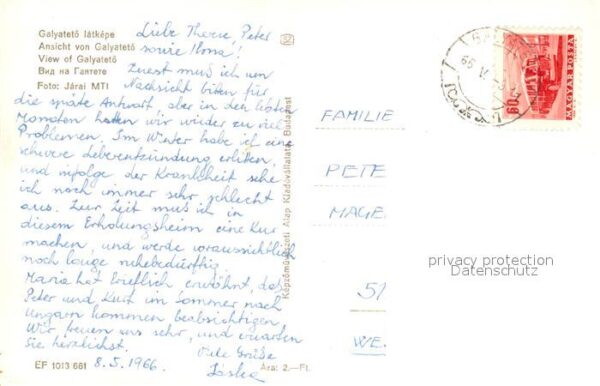 Galyatető látképe
Ansicht von Galyatető
View of Galyatető
Вид на Галтете
Foto: Járai MTI
Liebe Therese Peter
sowie Ilona!
Zuerst muß ich um
Nachsicht bitten für
die späte Antwort, aber in den letzten
Monaten hatten wir wieder zu viel
Problemen. Im Winter habe ich eine
schwere Leberentzündung erlitten,
und infolge der Krankheit sehe
ich noch immer sehr schlecht
aus. Zur Zeit muß ich in
diesem Erholungsheim eine Kur
machen, und werde voraussichtlich
noch lange ruhebedürftig.
Maria hat brieflich erwähnt, daß
Peter und Kurt im Sommer nach
Ungarn kommen beabsichtigen.
Wir freuen uns sehr, und erwarten
Sie herzlichst.
Viele Grüße
8.5.1966.
EF 1013 661
Ára: 2.—Ft.
Képzőművészeti Alap Kiadóvállalata, Budapest
FAMILIE
PETE
MAGE
51
WE
60f
MAGYAR POSTA
privacy protection
Datenschutz